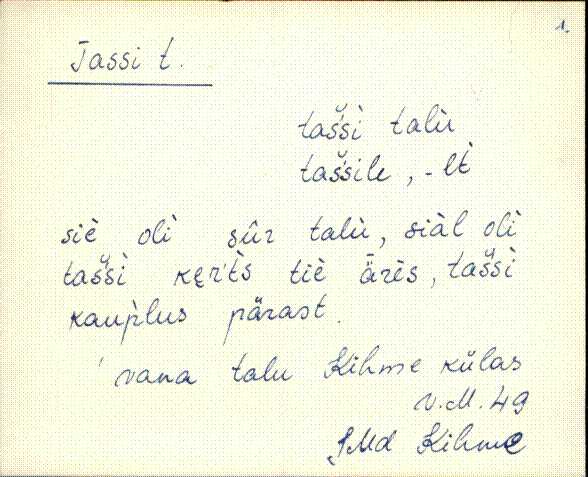 1.
Tassi t.
tašśì talù
tašśile, -lt̀
siè olì sûr talù, siàl olì
tašśì kęŕt̀s tiè ä̂rès, tašśì
kauṕlus pärast.
vana talu Kihme külas
V.M. 49
SMd Kihme